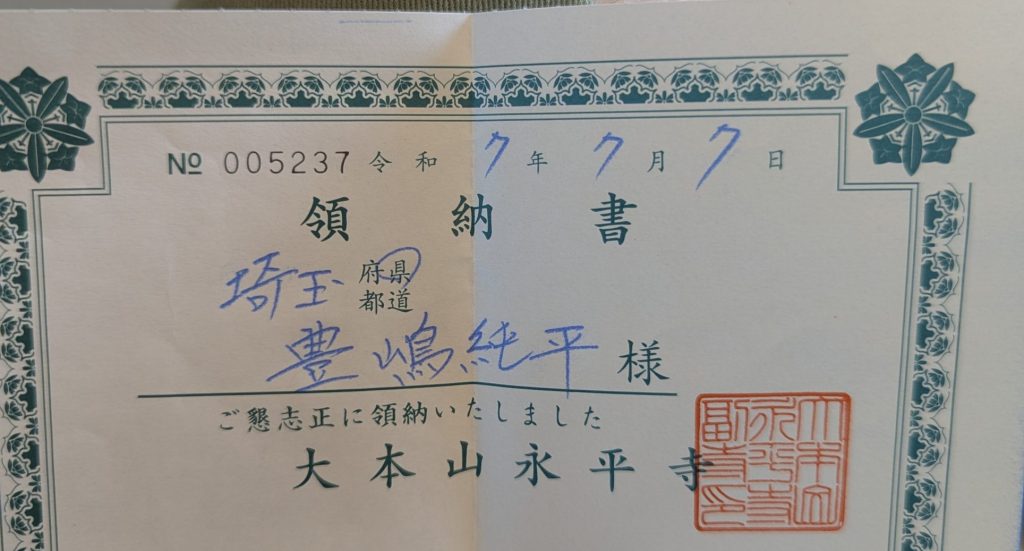 № 005237 令和 7 年 7 月 7 日
領納書
埼玉 府県
都道
豊嶋純平 様
ご懇志正に領納いたしました
大本山永平寺
大本山永平寺副寺印